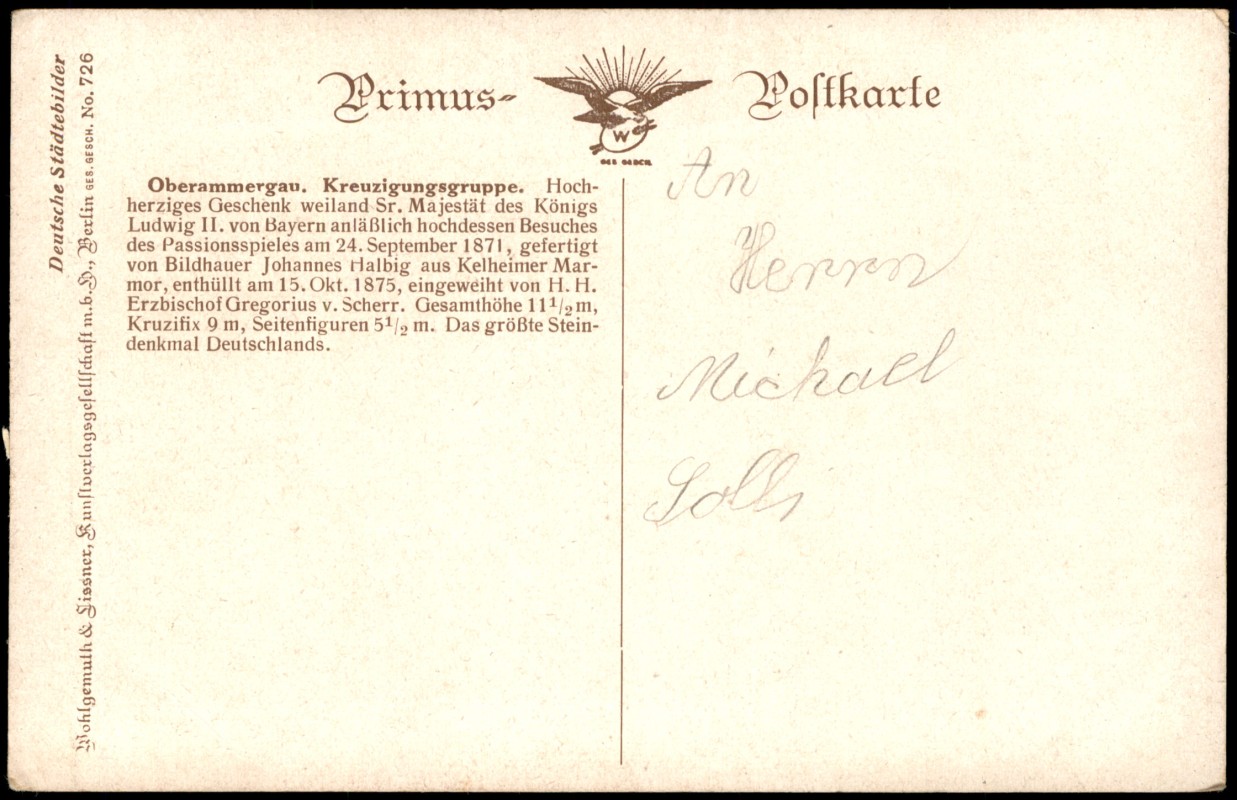 Deutsche Städtebilder
Wohlgemuth & Lissner, Kunstverlagsgesellschaft m.b.H., Berlin GES. GESCH. No. 726
Primus- Postkarte
W
GES. GESCH.
Oberammergau. Kreuzigungsgruppe. Hoch-
herziges Geschenk weiland Sr. Majestät des Königs
Ludwig II. von Bayern anläßlich hochdessen Besuches
des Passionsspieles am 24. September 1871, gefertigt
von Bildhauer Johannes Halbig aus Kelheimer Mar-
mor, enthüllt am 15. Okt. 1875, eingeweiht von H. H.
Erzbischof Gregorius v. Scherr. Gesamthöhe 11 1/2 m,
Kruzifix 9 m, Seitenfiguren 5 1/2 m. Das größte Stein-
denkmal Deutschlands.
An
Herrn
Michael